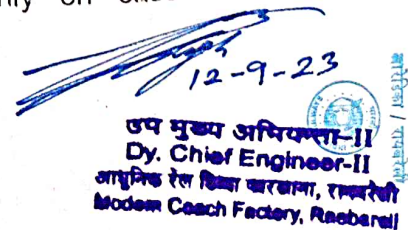 12-9-23
उप मुख्य अभियन्ता-II
Dy. Chief Engineer-II
आधुनिक रेल डिब्बा कारखाना, रायबरेली
Modern Coach Factory, Raebareli